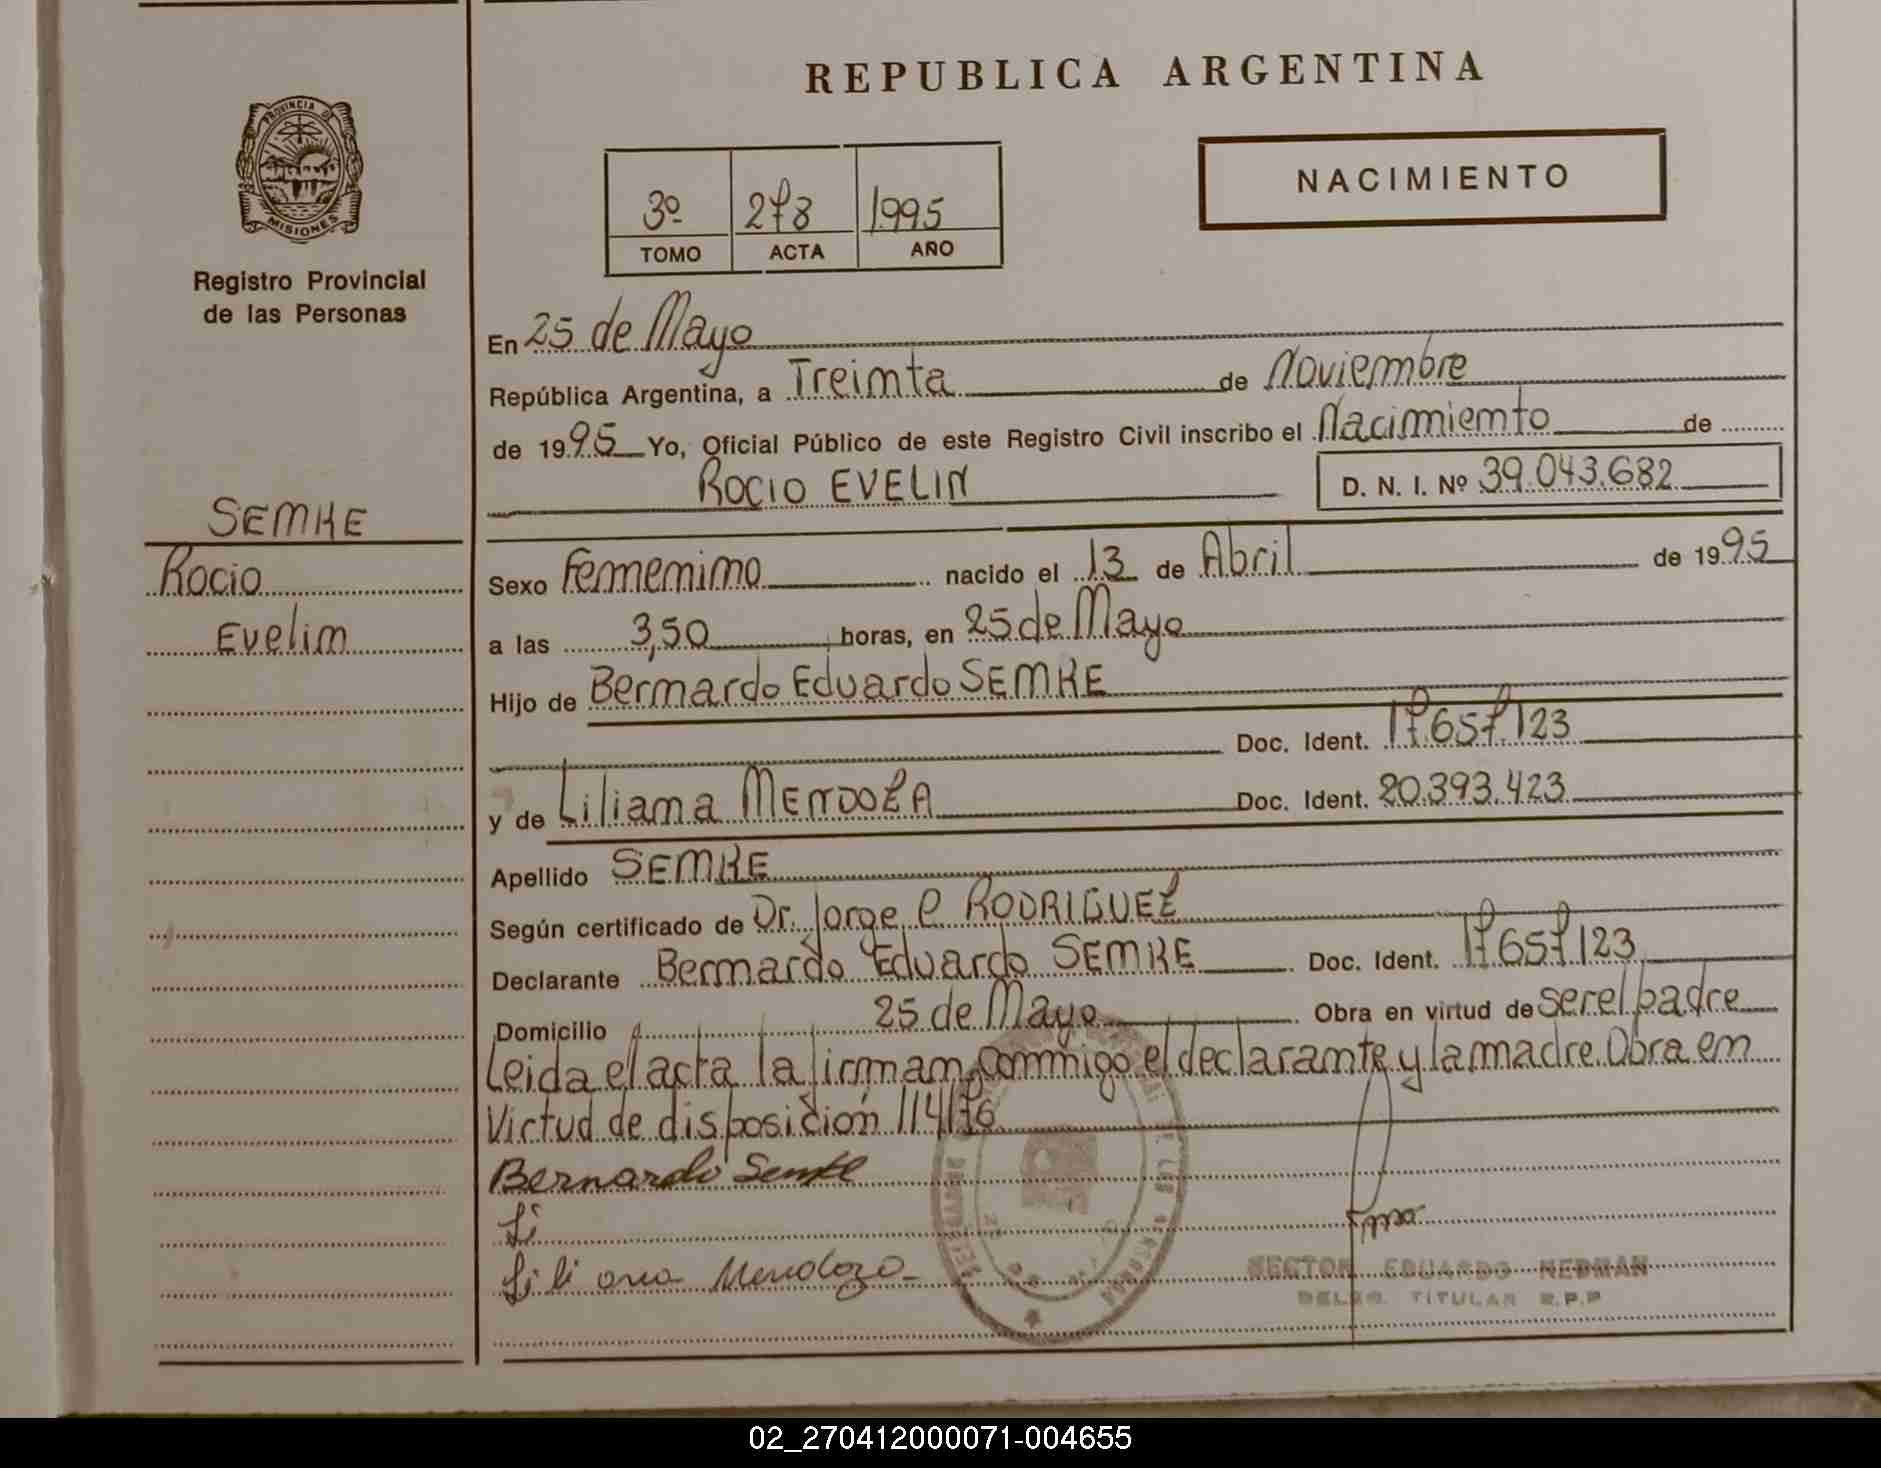 REPUBLICA ARGENTINA
PROVINCIA DE
MISIONES
Registro Provincial
de las Personas
3º 278 1995
TOMO ACTA AÑO
NACIMIENTO
SEMKE
Rocio
Evelin
En 25 de Mayo
República Argentina, a Treinta de Noviembre
de 1995 Yo, Oficial Público de este Registro Civil inscribo el Nacimiento de
ROCIO EVELIN D. N. I. Nº 39.043.682
Sexo Femenino nacido el 13 de Abril de 1995
a las 3,50 horas, en 25 de Mayo
Hijo de Bernardo Eduardo SEMKE
Doc. Ident. 17.657.123
y de Liliana MENDOZA Doc. Ident. 20.393.423
Apellido SEMKE
Según certificado de Dr. Jorge C RODRIGUEZ
Declarante Bernardo Eduardo SEMKE Doc. Ident. 17.657.123
Domicilio 25 de Mayo Obra en virtud de ser el padre
Leida el acta la firman conmigo el declarante y la madre. Obra en
Virtud de disposición 114/76
Bernardo Semke
Li
Liliana Mendoza
EDUARDO
TITULAR R.P.P
02_270412000071-004655